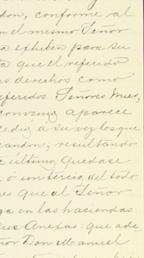 don, conforme al
n el mismo Señor
exhibe para su
a que el referido
os derechos como
eferidos Señores Mier,
convenga aparece
cedió a su vez los que
resultando
e último quedase
o tercio del todo
es que al Señor
ga en las haciendas
sus Anexas: que ade
or Don Manuel